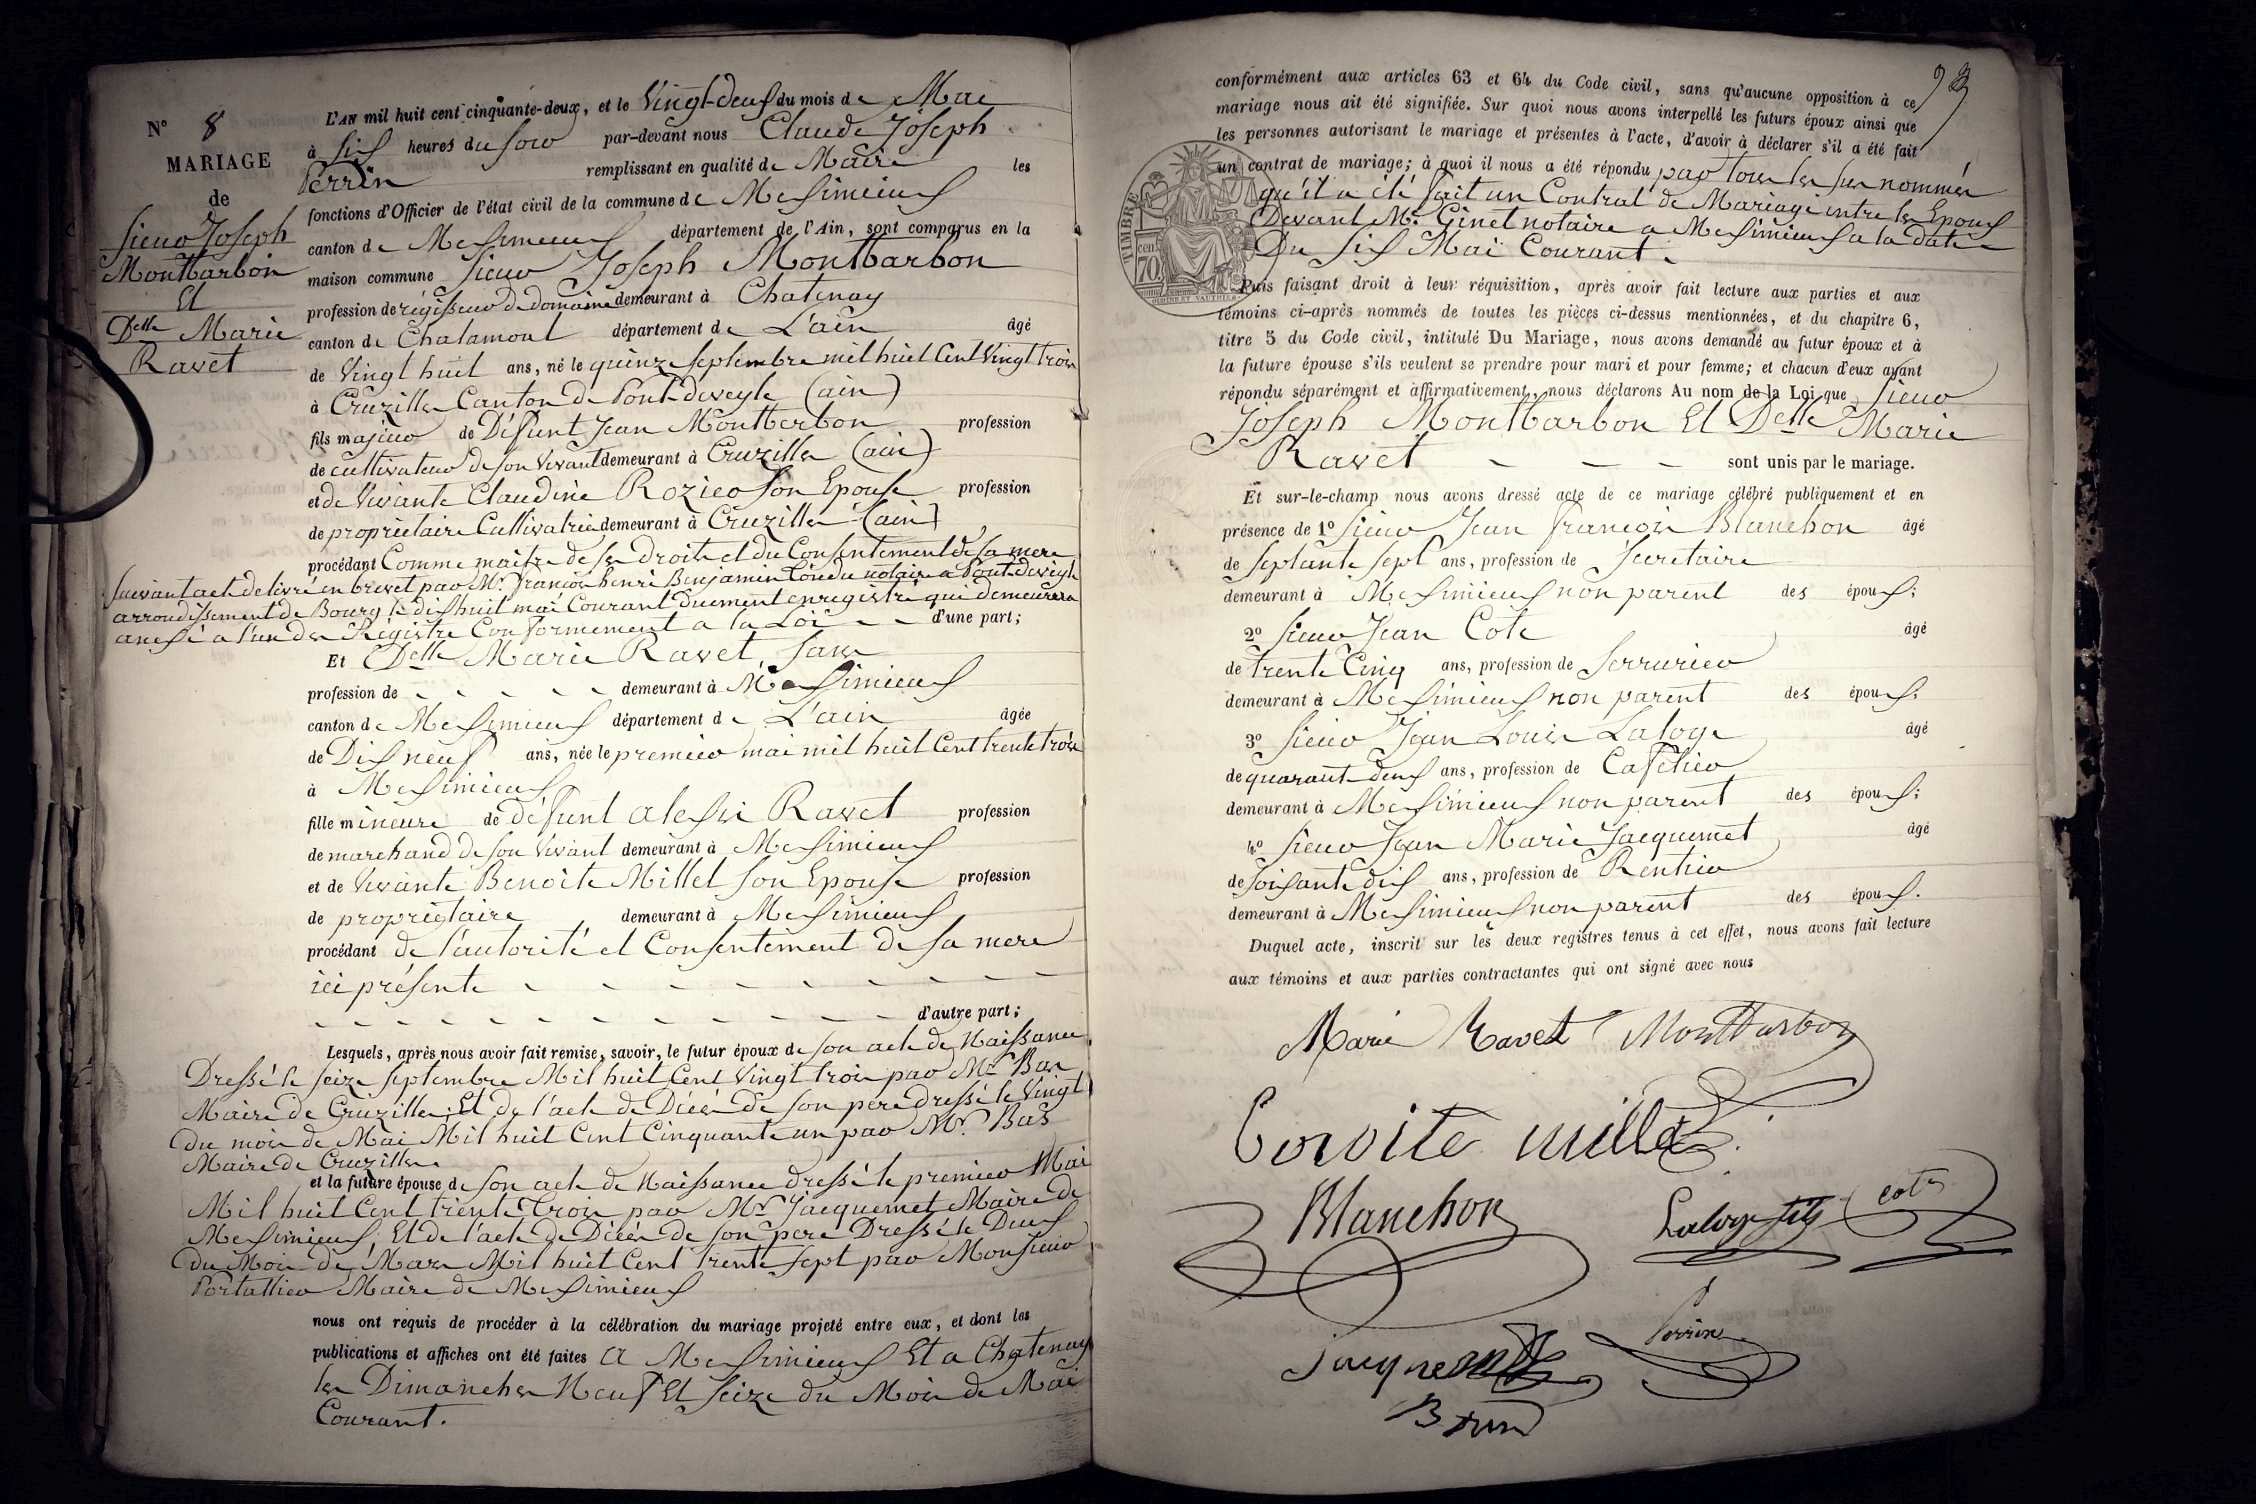 N° 8
MARIAGE
de
Sieur Joseph
Montbarbon
Et
Delle Marie
Ravet
L'AN mil huit cent cinquante-deux, et le Vingt-deux du mois de Mai
à six heures du soir par-devant nous Claude Joseph
Perrin remplissant en qualité de Maire les
fonctions d'Officier de l'état civil de la commune de Meximieux
canton de Meximieux département de l'Ain, sont comparus en la
maison commune Sieur Joseph Montbarbon
profession de régisseur de domaine demeurant à Chatenay
canton de Chalamont département de L'ain âgé
de Vingt huit ans, né le quinze septembre mil huit Cent Vingt trois
à Cruzilles Canton de Pont-deveyle (ain)
fils majeur de Défunt Jean Montberbon profession
de cultivateur de son vivant demeurant à Cruzilles (ain)
et de Vivante Claudine Rozier son Epouse profession
de propriétaire Cultivatrice demeurant à Cruzilles (ain)
procédant Comme maitre de ses droits et du Consentement de sa mere
suivant acte delivré en brevet par Mr. François henri Benjamin notaire a Pont-deveyle
arrondissement de Bourg le dixhuit mai Courant duement enregistré qui demeurera
anexé a l'un des Régistre Conformement a la Loi d'une part;
Et Delle Marie Ravet, sans
profession de demeurant à Meximieux
canton de Meximieux département de L'ain âgée
de Dix neuf ans, née le premier mai mil huit Cent trente trois
à Meximieux
fille mineure de défunt alexis Ravet profession
de marchand de son vivant demeurant à Meximieux
et de Vivante Benoite Millet son Epouse profession
de propriétaire demeurant à Meximieux
procédant de l'autorité et Consentement de sa mere
ici présente
d'autre part;
Lesquels, après nous avoir fait remise, savoir, le futur époux de son acte de Naissance
Dressé le seize septembre Mil huit Cent Vingt trois par Mr Bas
Maire de Cruzilles, Et de l'acte de Décès de son pere dressé le Vingt
du mois de Mai Mil huit Cent Cinquante un par Mr. Bas
Maire de Cruzilles
et la future épouse de son acte de Naissance dressé le premier Mai
Mil huit Cent trente Trois par Mr Jacquemet Maire de
Meximieux, Et de l'acte de Décès de son pere Dressé le Deux
du Mois de Mars Mil huit Cent trente sept par Monsieur
Portallier Maire de Meximieux
nous ont requis de procéder à la célébration du mariage projeté entre eux, et dont les
publications et affiches ont été faites a Meximieux Et a Chatenay
les Dimanches Neuf Et seize du Mois de Mai
Courant.
conformément aux articles 63 et 64 du Code civil, sans qu'aucune opposition à ce
mariage nous ait été signifiée. Sur quoi nous avons interpellé les futurs époux ainsi que
les personnes autorisant le mariage et présentes à l'acte, d'avoir à déclarer s'il a été fait
un contrat de mariage; à quoi il nous a été répondu par tous les sus nommés
qu'il a été fait un Contrat de Mariage entre les Epoux
Devant Mr. Ginet notaire a Meximieux a la date
Du six Mai Courant.
TIMBRE
cent
70
Puis faisant droit à leur réquisition, après avoir fait lecture aux parties et aux
témoins ci-après nommés de toutes les pièces ci-dessus mentionnées, et du chapitre 6,
titre 5 du Code civil, intitulé Du Mariage, nous avons demandé au futur époux et à
la future épouse s'ils veulent se prendre pour mari et pour femme; et chacun d'eux ayant
répondu séparément et affirmativement, nous déclarons Au nom de la Loi que Sieur
Joseph Montbarbon Et Delle Marie
Ravet sont unis par le mariage.
Et sur-le-champ nous avons dressé acte de ce mariage célébré publiquement et en
présence de 1° Sieur Jean françois Blanchon âgé
de septante sept ans, profession de Secretaire
demeurant à Meximieux non parent des époux;
2° Sieur Jean Cote âgé
de trente Cinq ans, profession de Serrurier
demeurant à Meximieux non parent des époux;
3° Sieur Jean Louis Laloge âgé
de quarant-deux ans, profession de Cafetier
demeurant à Meximieux non parent des époux;
4° Sieur Jean Marie Jacquemet âgé
de soixante dix ans, profession de Rentier
demeurant à Meximieux non parent des époux.
Duquel acte, inscrit sur les deux registres tenus à cet effet, nous avons fait lecture
aux témoins et aux parties contractantes qui ont signé avec nous
Marie Ravet Montbarbon
millet
Blanchon Laloge fils cote
Jacquemet Perrin